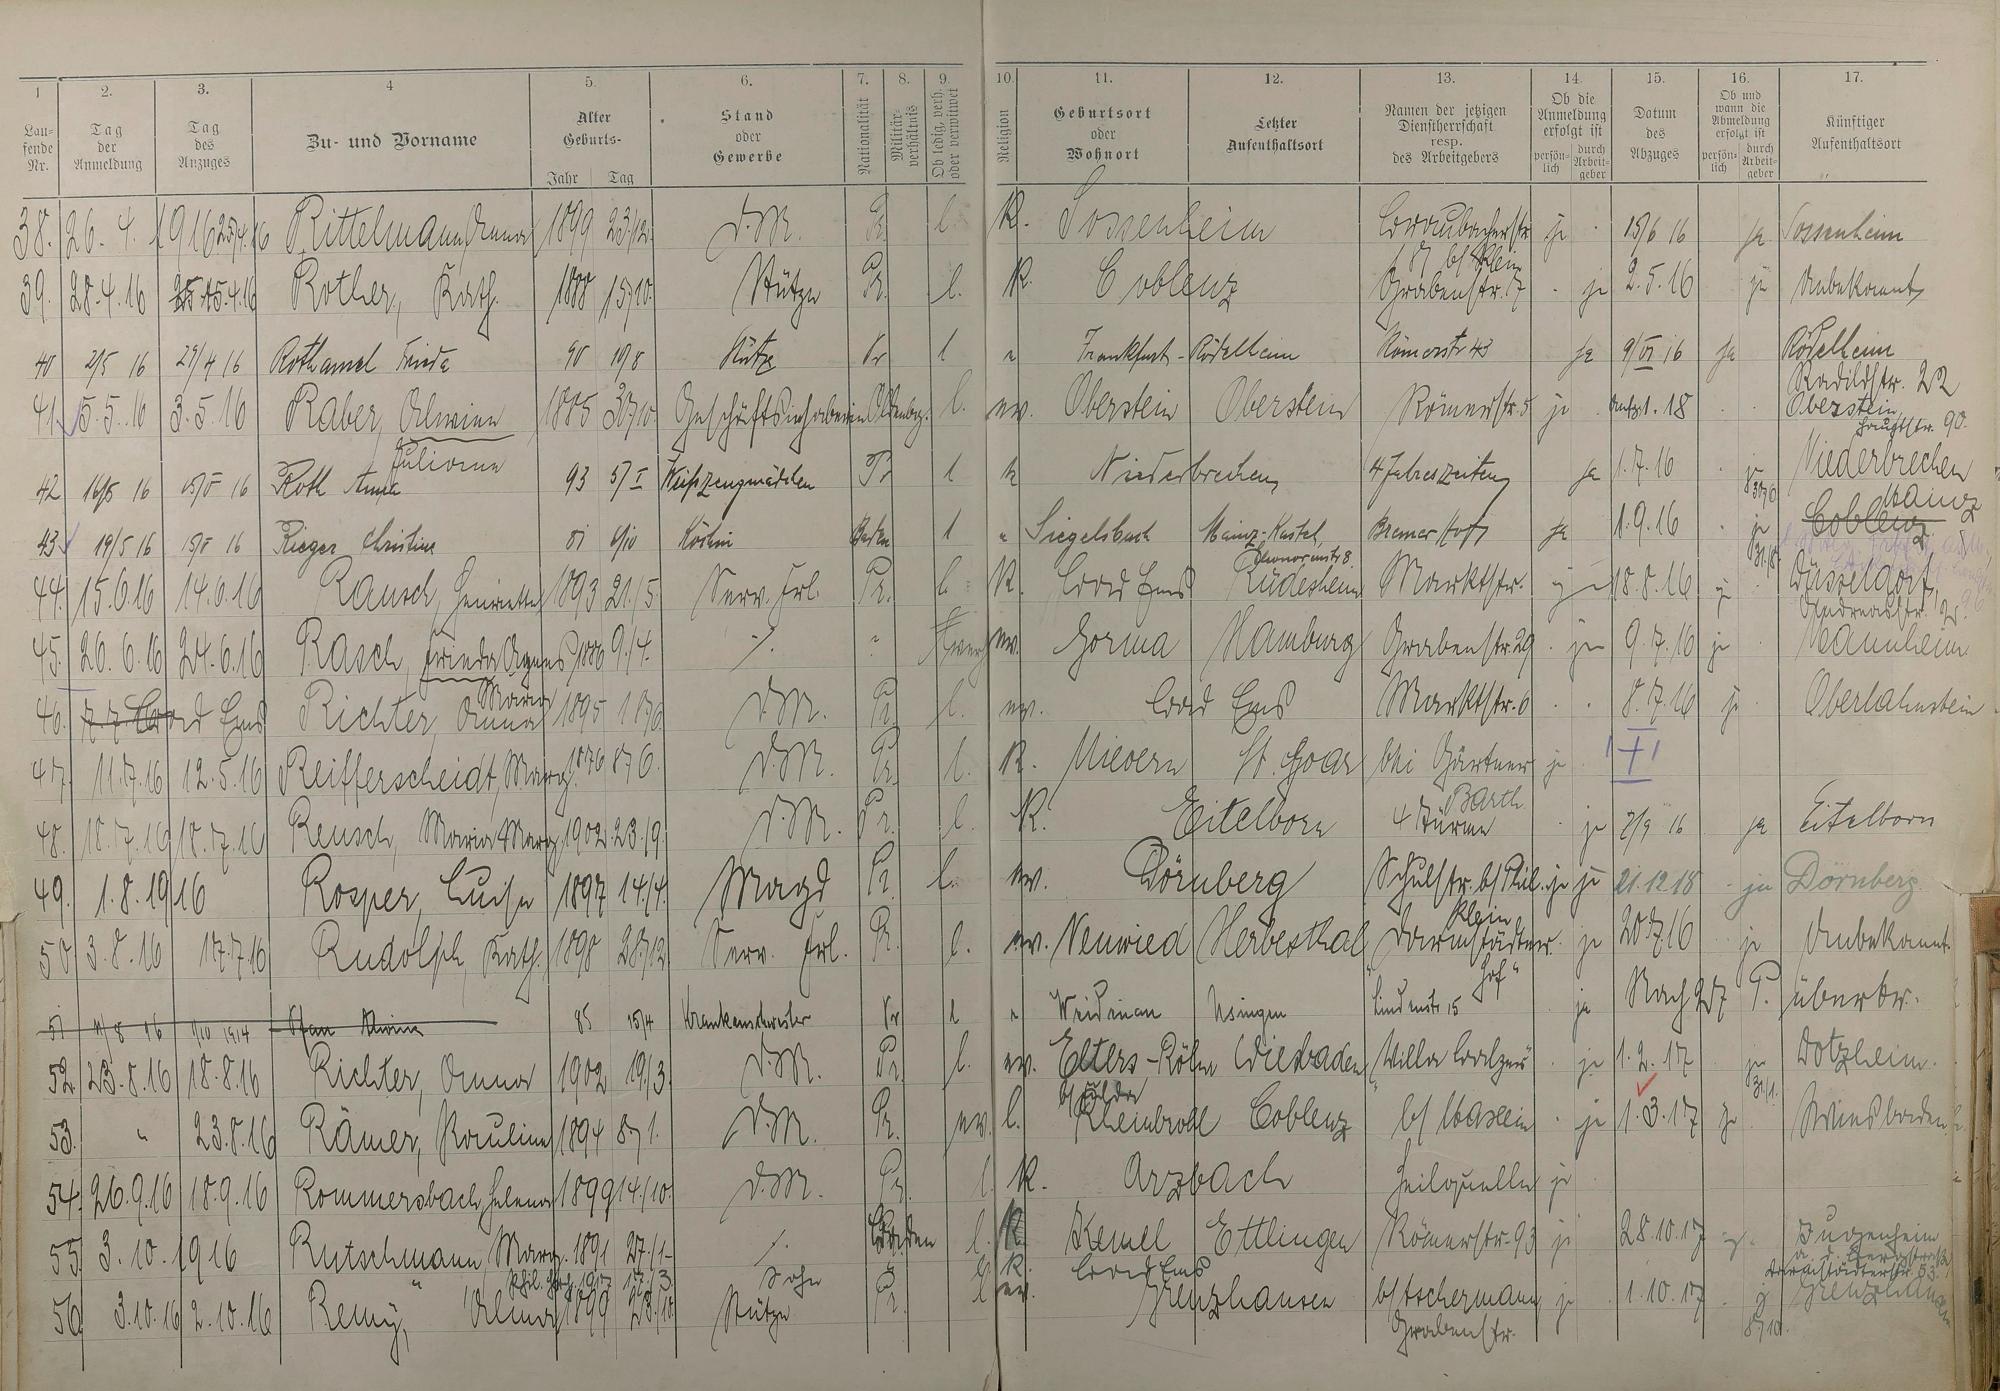 1 2. 3. 4 5. 6. 7. 8. 9. 10. 11. 12. 13. 14. 15. 16. 17.
Laufende Nr.
Tag der Anmeldung
Tag des Anzuges
Zu- und Vorname
Alter Geburts- Jahr Tag
Stand oder Gewerbe
Nationalität
Militärverhältnis
Ob ledig, verh. oder verwitwet
Religion
Geburtsort oder Wohnort
Letzter Aufenthaltsort
Namen der jetzigen Dienstherrschaft resp. des Arbeitgebers
Ob die Anmeldung erfolgt ist persönlich durch Arbeitgeber
Datum des Abzuges
Ob und wann die Abmeldung erfolgt ist persönlich durch Arbeitgeber
Künftiger Aufenthaltsort
38. 26. 4. 1916 25/4.16 Rittelmann Anna 1899 23/12. D.M. Pr. l. K. Sossenheim ja 15/6 16 ja Sossenheim
39. 28.4.16 25.4.16 Rother, Kath. 1888 15/10. Stütze Pr. l. K. Coblenz Grabenstr. 17 ja 2.5.16 ja Unbekannt
40 2/5 16 29/4 16 Rothamel Frieda 98 19/8 Stütze Pr l " Frankfurt-Rödelheim Römerstr 43 ja 9/VI 16 ja Rödelheim
Radilostr. 22
41 5.5.16 3.5.16 Raber, Alwine 1885 30/10. Geschäftsinhaberin Oldenbg. l. ev. Oberstein Oberstein Römerstr. 5 ja 1.18 Oberstein
Hauptstr. 90.
Juliana
42 16/5 16 15/5 16 Roth Anna 93 5/I Weißzeugmädchen Pr l k Niederbrechen 4 Jahreszeiten ja 1.7.16 30/6 Niederbrechen
Mainz
43 19/5 16 15/5 16 Rieger Christine 81 6/10 Köchin Baden l " Siegelsbach Mainz-Kastel Bremer Hof ja 1.9.16 ja Coblenz
31/8
44. 15.6.16 14.6.16 Rausch, Henriette 1893 21/5. Serv. Frl. Pr. l. K. Bad Ems Rüdesheim Marktstr. ja 18.8.16 ja Düsseldorf,
Andreasstr.
45. 26.6.16 24.6.16 Rasch, Frieda Agnes 1886 9/4. ./. " ev. Hamburg Grabenstr. 29 ja 9.7.16 ja Mannheim
Maria
46. 7.7. Bad Ems Richter, Anna 1895 18/6. D.M. Pr. l. ev. Bad Ems Marktstr. 6 8.7.16 ja Oberlahnstein
47. 11.7.16 12.5.16 Reifferscheidt, Marg. 1876 8/6. D.M. Pr. l. K. Mievern St. Goar bei Gärtner ja
Barth
48. 18.7.16 18.7.16 Reusch, Maria Marg. 1902 23/9. D.M. Pr. l. K. Eitelborn 4 Türme ja 2/9 16 ja Eitelborn
49. 1.8.1916 Rosper, Luise 1897 14/4. Magd Pr. l. ev. Dörnberg Schulstr. b/ Phil. ja 21.12.18 ja Dörnberg
Klein
50 3.8.16 17.7.16 Rudolph, Kath. 1898 28/12 Serv. Frl. Pr. l. ev. Neuwied Herbesthal Darmstädter ja 20.7.16 ja Unbekannt.
Hof"
51 11/8 16 1/10 1914 Alwine 85 15/4 Krankenschwester Pr l " Usingen Lindenstr 15 ja Nach 257 P. übertr.
52. 23.8.16 18.8.16 Richter, Anna 1902 19/3. D.M. Pr. l. ev. Wiesbaden "Villa Balzer" ja 1.2.17 ja Dotzheim.
b/ Fulda 31/1.
53. " 23.8.16 Rämer, Pauline 1894 8/1. D.M. Pr. ev. l. Rheinbrohl Coblenz ja 1.3.17 ja Wiesbaden
54. 26.9.16 18.9.16 Rommersbach, Helena 1899 14/10. D.M. Pr. l. K. Arzbach Heilquelle ja
55. 3.10.1916 Rutschmann, Marg. 1891 27/1. ./. Baden l. K. Kemel Ettlingen Römerstr. 93 ja 28.10.17
" 1917 17/3. Sohn K. Bad Ems Darmstädterstr. 53.
56 3.10.16 2.10.16 Remy, Alma 1899 23/10. Stütze Pr. l ev. Grenzhausen ja 1.10.17 Grenzhausen
Grabenstr. 8/10.